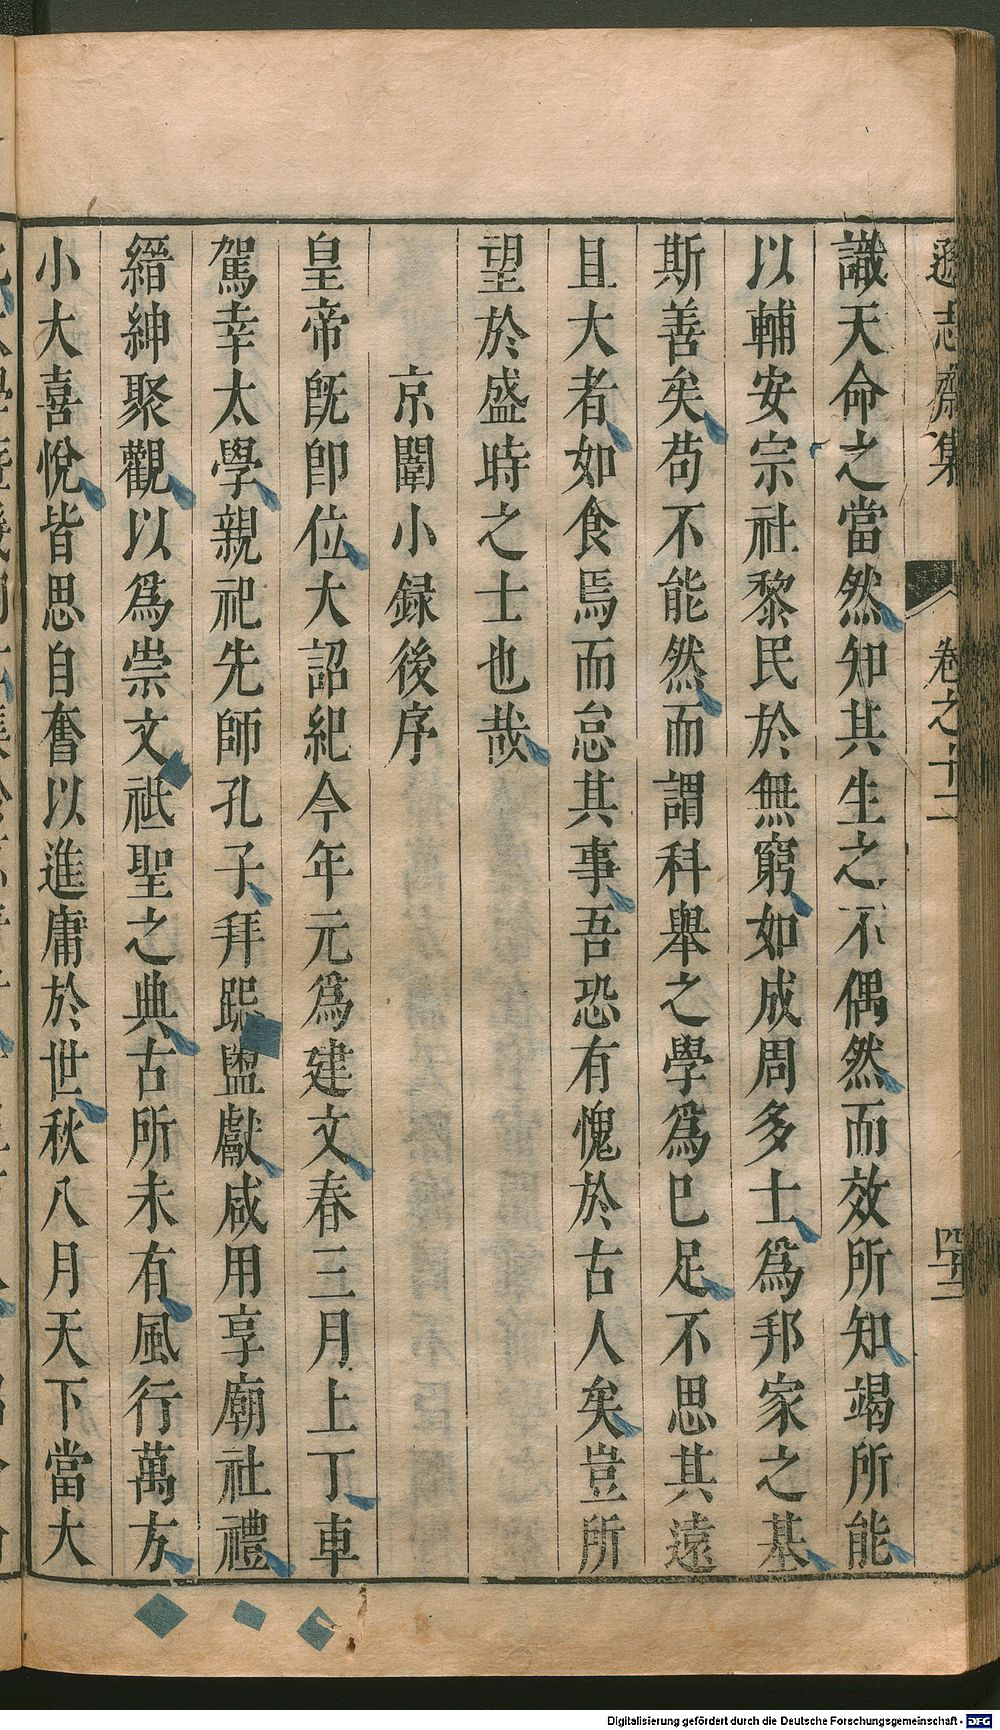 遜志齋集 卷之十二 四十三
識天命之當然知其生之不偶然而效所知竭所能
以輔安宗社黎民於無窮如成周多士爲邦家之基
斯善矣苟不能然而謂科舉之學爲已足不思其遠
且大者如食焉而怠其事吾恐有愧於古人矣豈所
望於盛時之士也哉
京闈小録後序
皇帝旣卽位大詔紀今年元爲建文春三月上丁車
駕幸太學親祀先師孔子拜跽盥獻咸用享廟社禮
縉紳聚觀以爲崇文祗聖之典古所未有風行萬方
小大喜悅皆思自奮以進庸於世秋八月天下當大
Digitalisierung gefördert durch die Deutsche Forschungsgemeinschaft - DFG